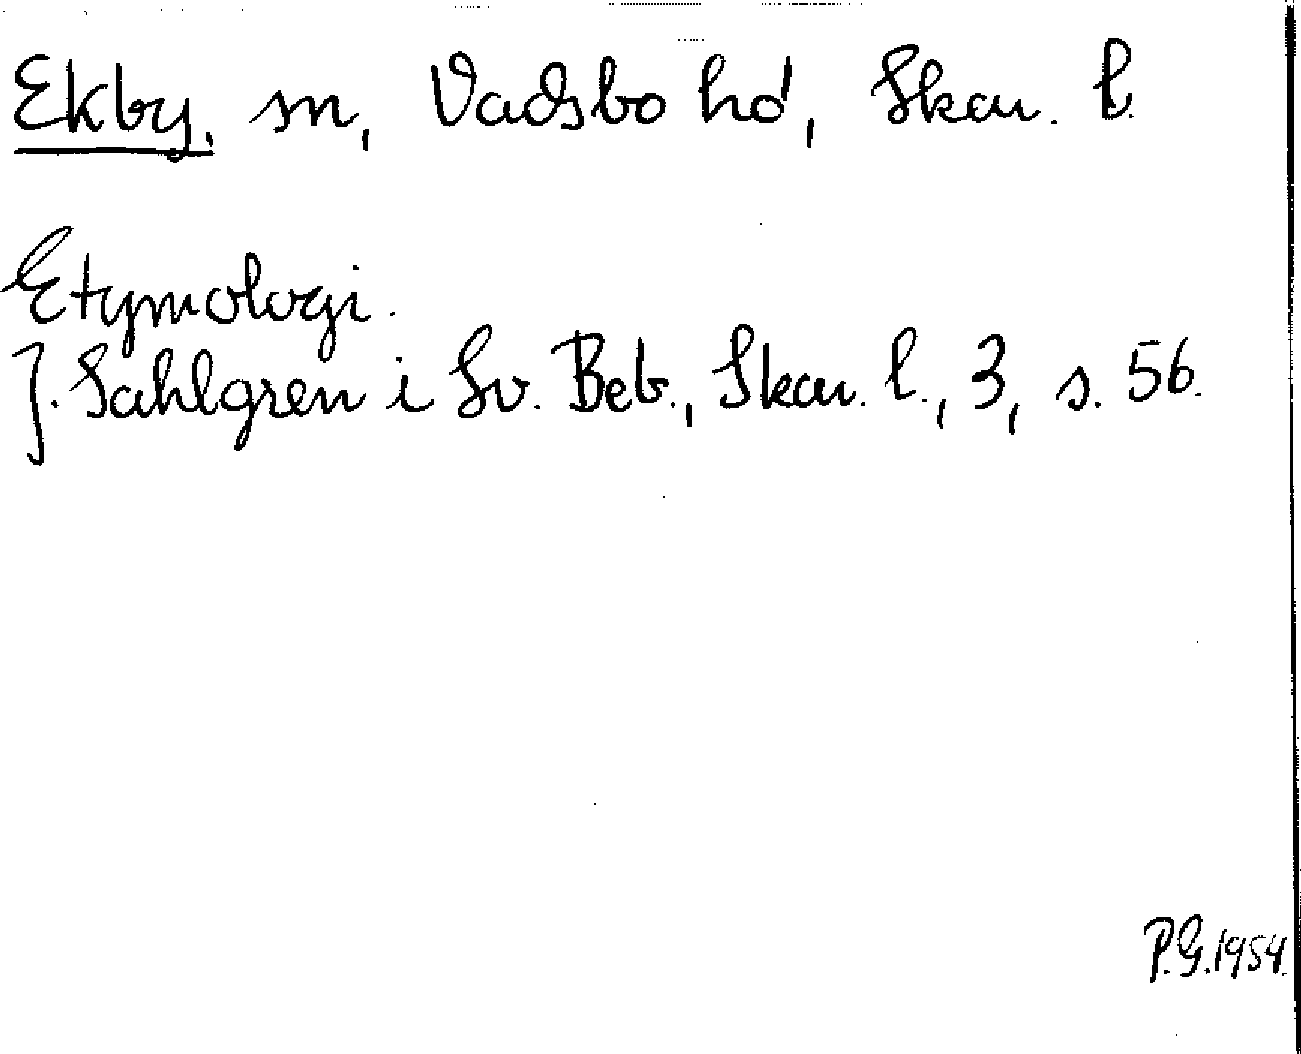 Ekby, sn, Vadsbo hd, Skar. l.
Etymologi.
J. Sahlgren i Sv. Beb., Skar. l., 3, s. 56.
P.G. 1954.